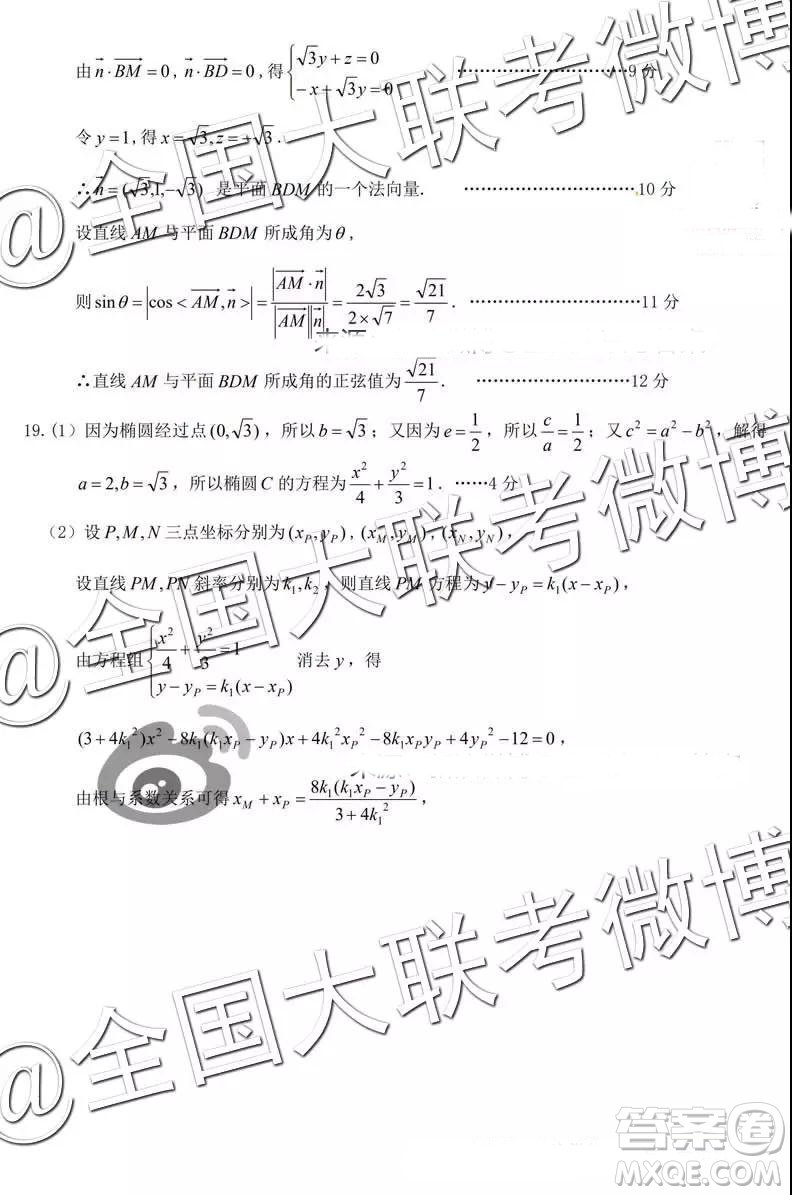 由 n⃗·BM⃗ = 0, n⃗·BD⃗ = 0, 得 {√3y + z = 0 …………………………9 分
−x + √3y = 0
令 y = 1, 得 x = √3, z = −√3.
∴ n⃗ = (√3,1,−√3) 是平面 BDM 的一个法向量. …………………………10 分
设直线 AM 与平面 BDM 所成角为 θ,
则 sinθ = |cos< AM⃗, n⃗ >| = |AM⃗·n⃗| / |AM⃗||n⃗| = 2√3 / (2×√7) = √21 / 7. …………………………11 分
∴直线 AM 与平面 BDM 所成角的正弦值为 √21 / 7. …………………………12 分
19.(1) 因为椭圆经过点 (0,√3), 所以 b = √3; 又因为 e = 1/2, 所以 c/a = 1/2; 又 c² = a² − b², 解得
a = 2, b = √3, 所以椭圆 C 的方程为 x²/4 + y²/3 = 1. ……4 分
(2) 设 P, M, N 三点坐标分别为 (x_P, y_P), (x_M, y_M), (x_N, y_N),
设直线 PM, PN 斜率分别为 k₁, k₂, 则直线 PM 方程为 y − y_P = k₁(x − x_P),
由方程组 {x²/4 + y²/3 = 1 消去 y, 得
y − y_P = k₁(x − x_P)
(3 + 4k₁²)x² − 8k₁(k₁x_P − y_P)x + 4k₁²x_P² − 8k₁x_P y_P + 4y_P² − 12 = 0,
由根与系数关系可得 x_M + x_P = 8k₁(k₁x_P − y_P) / (3 + 4k₁²),
@全国大联考微博
@全国大联考微博
@全国大联考微博
答案卷
MXQE.COM